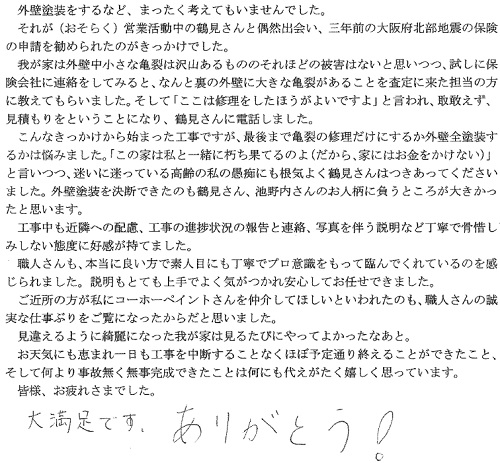 外壁塗装をするなど、まったく考えてもいませんでした。
それが（おそらく）営業活動中の鶴見さんと偶然出会い、三年前の大阪府北部地震の保険
の申請を勧められたのがきっかけでした。
我が家は外壁中小さな亀裂は沢山あるもののそれほどの被害はないと思いつつ、試しに保
険会社に連絡をしてみると、なんと裏の外壁に大きな亀裂があることを査定に来た担当の方
に教えてもらいました。そして「ここは修理をしたほうがよいですよ」と言われ、取敢えず、
見積もりをということになり、鶴見さんに電話しました。
こんなきっかけから始まった工事ですが、最後まで亀裂の修理だけにするか外壁全塗装す
るかは悩みました。「この家は私と一緒に朽ち果てるのよ（だから、家にはお金をかけない）」
と言いつつ、迷いに迷っている高齢の私の愚痴にも根気よく鶴見さんはつきあってくださ
いました。外壁塗装を決断できたのも鶴見さん、池野内さんのお人柄に負うところが大きかっ
たと思います。
工事中も近隣への配慮、工事の進捗状況の報告と連絡、写真を伴う説明など丁寧で骨惜し
みしない態度に好感が持てました。
職人さんも、本当に良い方で素人目にも丁寧でプロ意識をもって臨んでくれているのを感
じられました。説明もとても上手でよく気がつかれ安心してお任せできました。
ご近所の方が私にコーホーペイントさんを仲介してほしいといわれたのも、職人さんの誠
実な仕事ぶりをご覧になったからだと思いました。
見違えるように綺麗になった我が家は見るたびにやってよかったなあと。
お天気にも恵まれ一日も工事を中断することなくほぼ予定通り終えることができたこと、
そして何より事故無く無事完成できたことは何にも代えがたく嬉しく思っています。
皆様、お疲れさまでした。
大満足です、ありがとう!